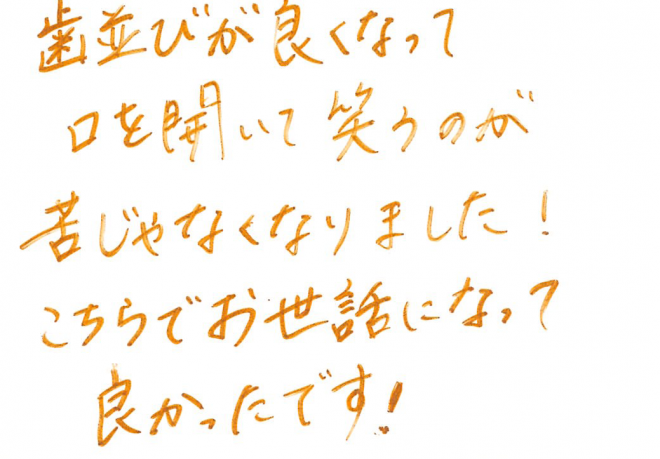 歯並びが良くなって
口を開いて笑うのが
苦じゃなくなりました!
こちらでお世話になって
良かったです!